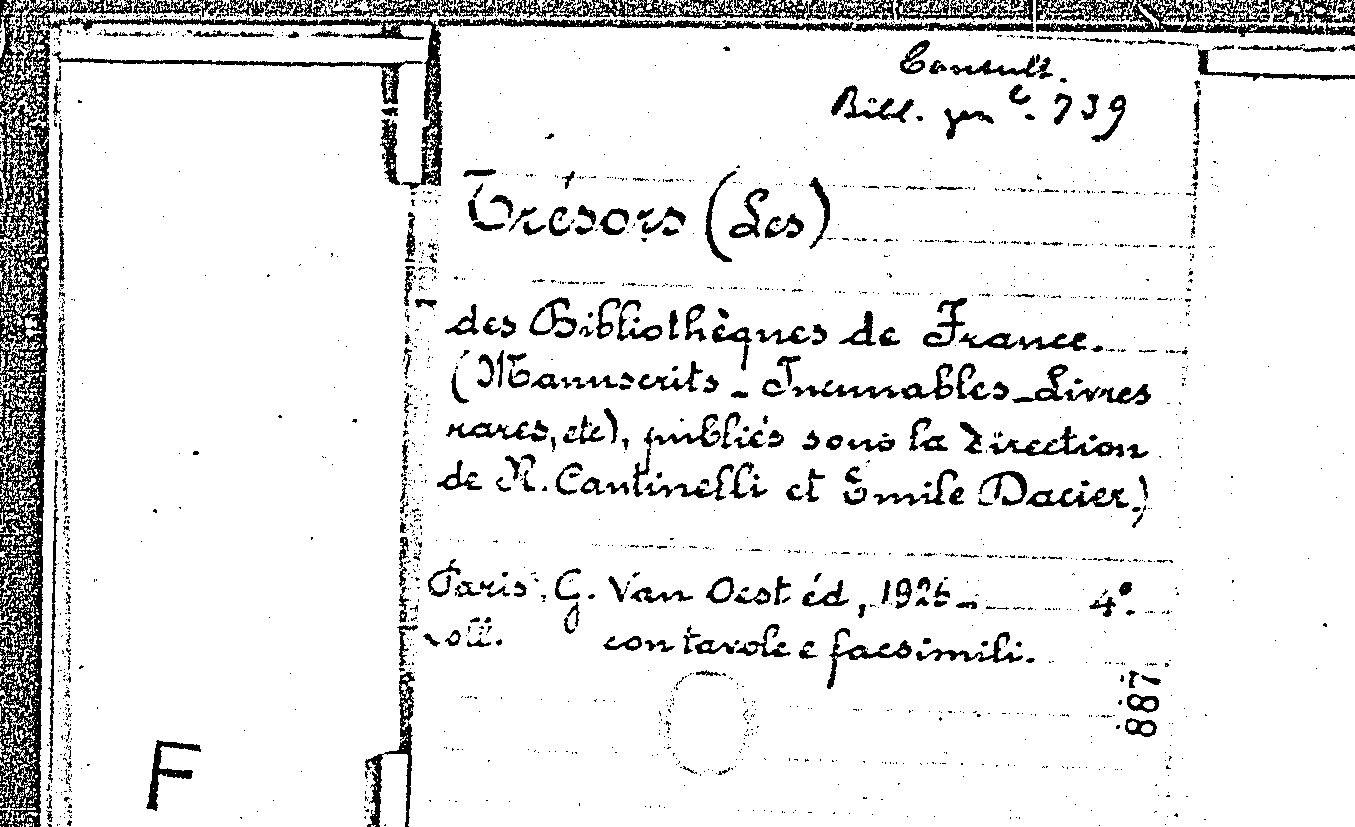 Consult.
Bibl. gen e. 739
Trésors (Les)
des Bibliothèques de France.
(Manuscrits - Incunables - Livres
rares, etc), publiés sous la direction
de R. Cantinelli et Emile Dacier.)
Paris, G. Van Oest éd, 1926 - 4°.
voll. con tavole e facsimili.
887
F